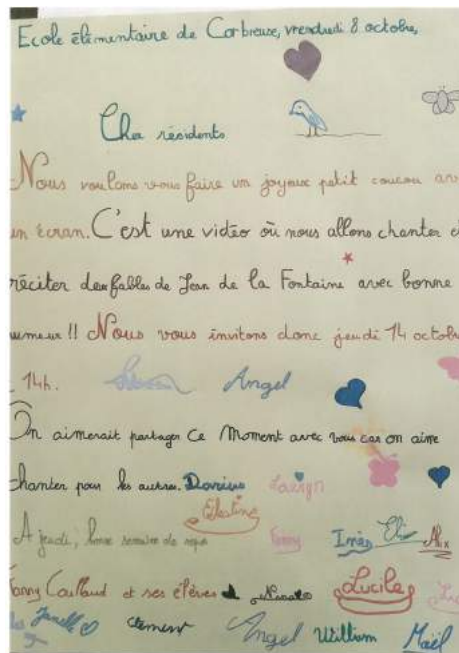 Ecole élémentaire de Corbreuse, vendredi 8 octobre,
Cher résidents
Nous voulons vous faire un joyeux petit coucou av
un écran. C'est une vidéo où nous allons chanter e
réciter des fables de Jean de la Fontaine avec bonne
umeur !! Nous vous invitons donc jeudi 14 octobr
14h. Angel
On aimerait partager ce moment avec vous car on aime
chanter pour les autres. Darius
A jeudi, bonne semaine
Fanny Inès Eli Alix
Fanny Caillaud et ses élèves Lucile
Clément Angel William Maël